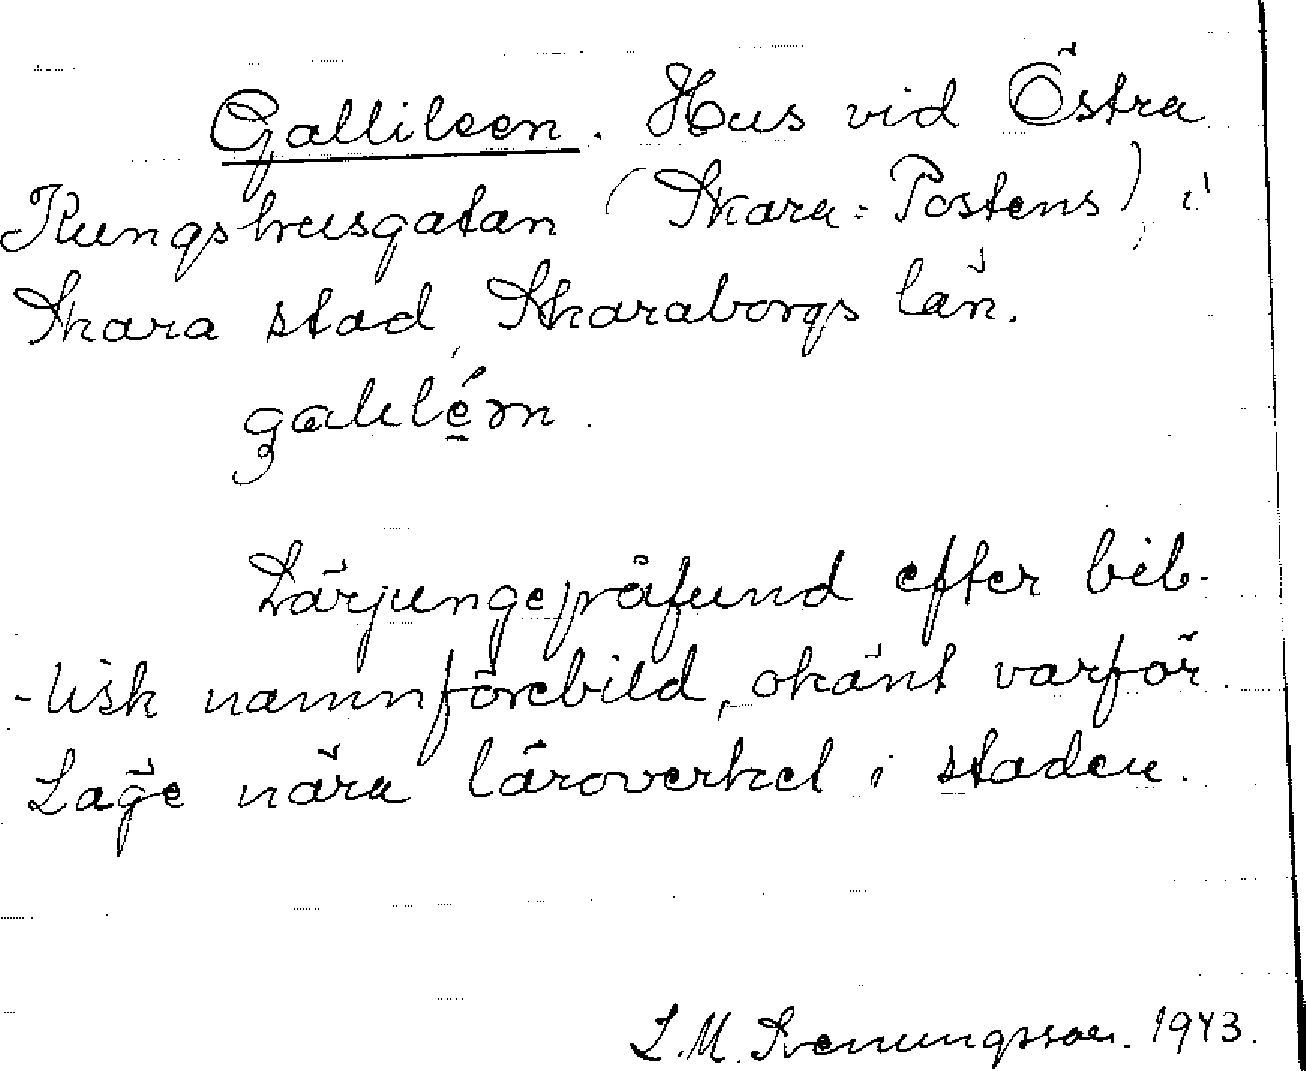 Gallileen. Hus vid Östra
Kungshusgatan (Skara-Postens), i
Skara stad, Skaraborgs län.
galilén.
Lärjungepåfund efter bib-
-lisk namnförebild, okänt varför.
Läge nära läroverket i staden.
L.M. Svenungsson. 1943.